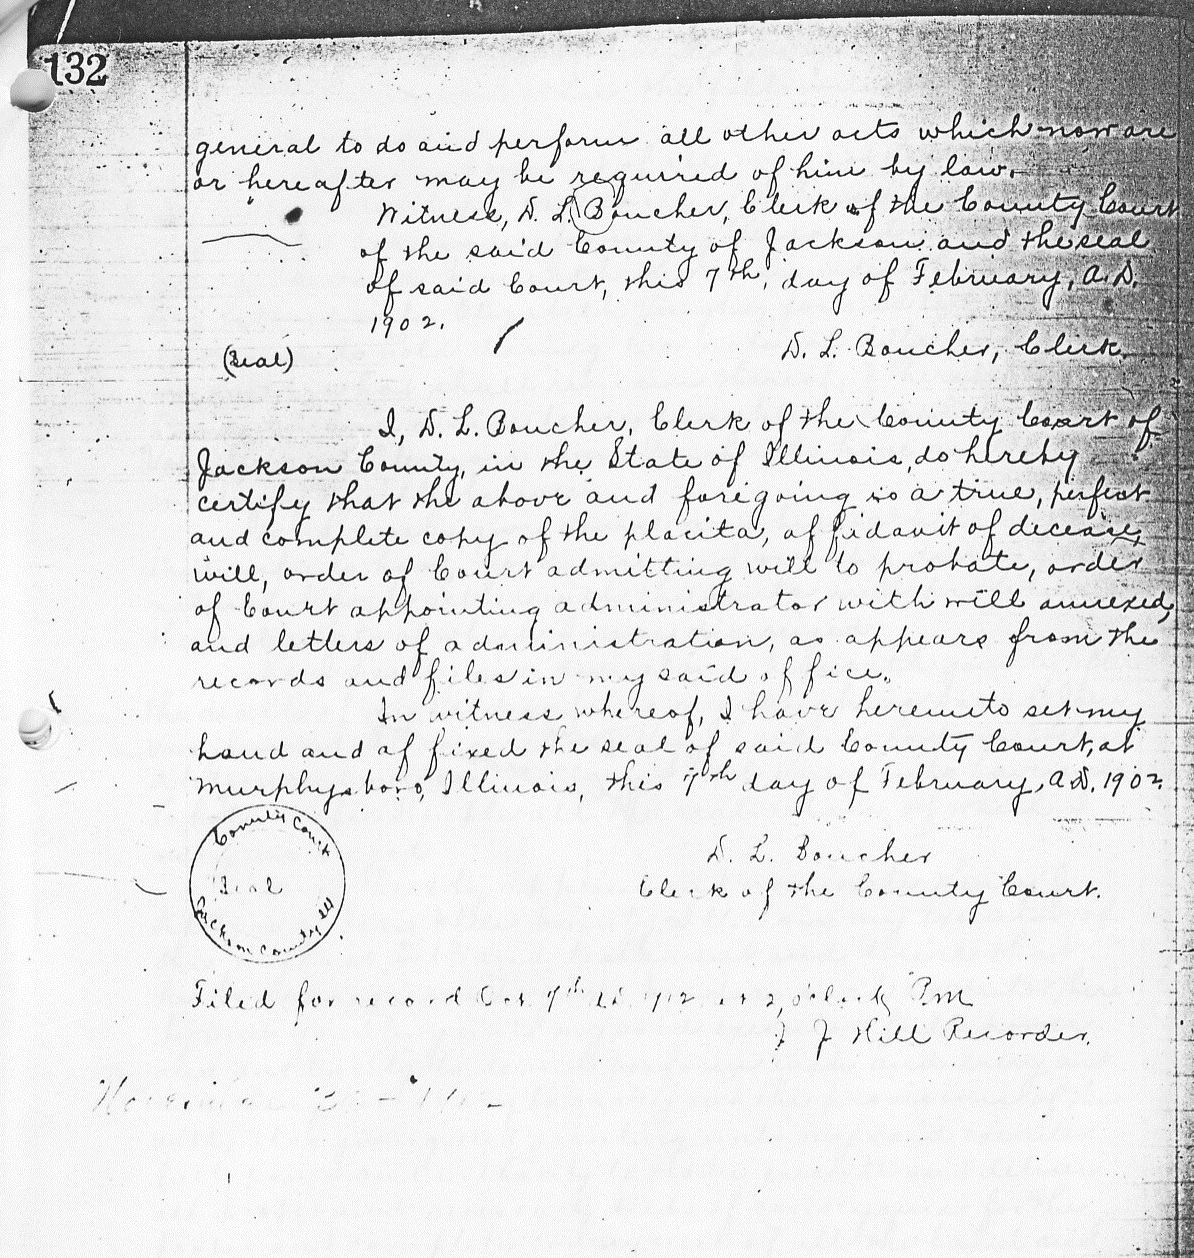 132
general to do and perform all other acts which now are
or hereafter may be required of him by law.
Witness, D. L. Boucher, Clerk of the County Court
of the said County of Jackson and the seal
of said Court, this 7th, day of February, A.D.
1902.
(Seal)
D. L. Boucher, Clerk.
I, D. L. Boucher, Clerk of the County Court of
Jackson County, in the State of Illinois, do hereby
certify that the above and foregoing is a true, perfect
and complete copy of the placita, affidavit of decease,
will, order of Court admitting will to probate, order
of Court appointing administrator with will annexed,
and letters of administration, as appears from the
records and files in my said office.
In witness whereof, I have hereunto set my
hand and affixed the seal of said County Court, at
Murphysboro, Illinois, this 7th day of February, A.D. 1902.
County Court
Seal
Jackson County Ill
D. L. Boucher
Clerk of the County Court.
Filed for record Oct 7th at 2, o'clock P.M
J Hill Recorder.